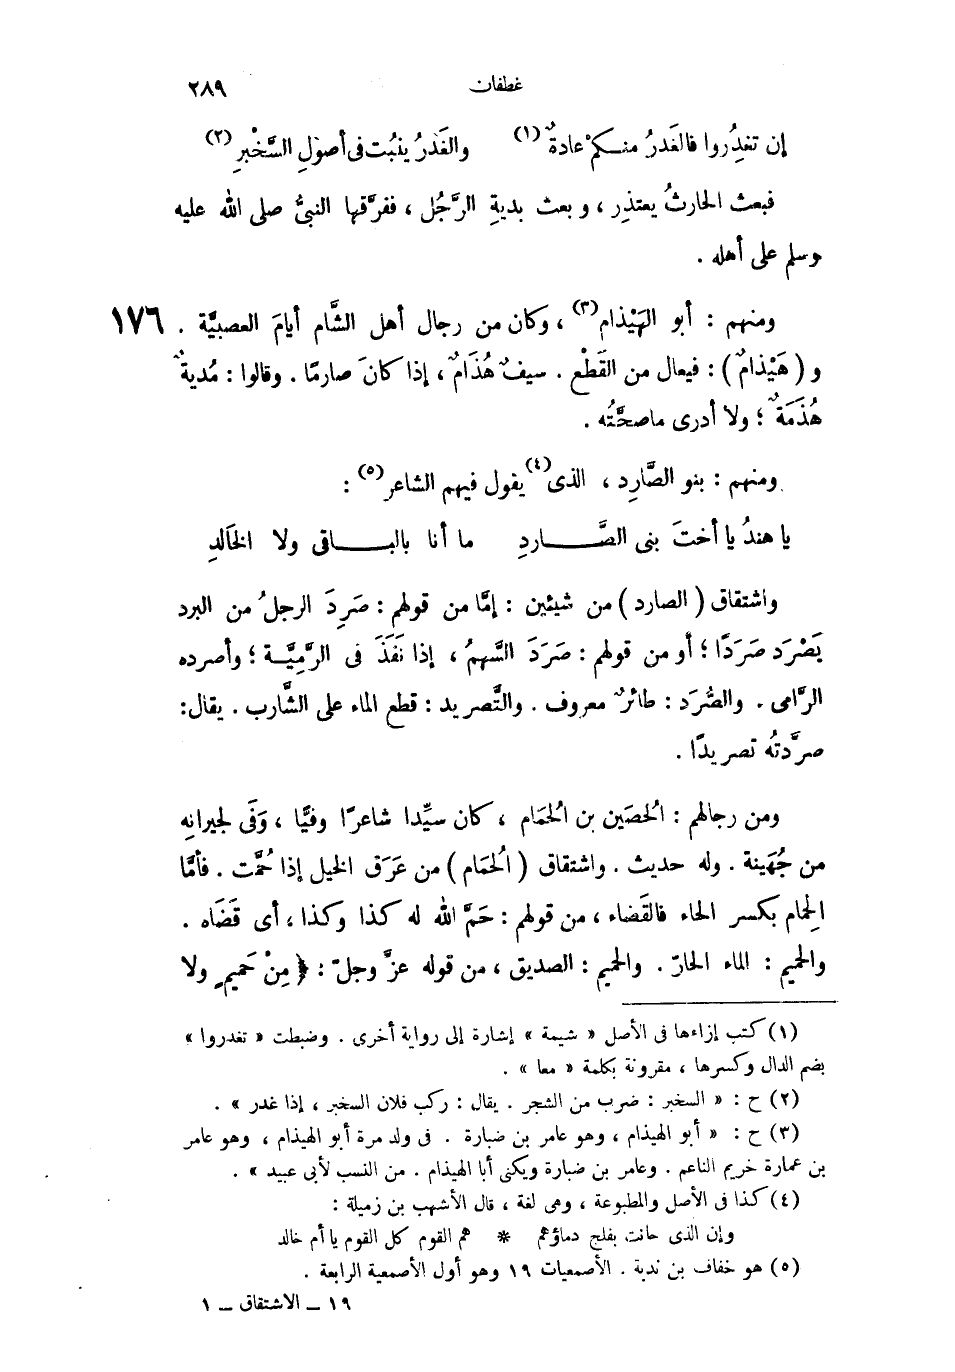 غطفان ٢٨٩
إن تغدِرُوا فالغَدرُ منـكمْ عادةٌ(١) والغَدرُ ينبُت فى أصولِ السَّخْبرِ(٢)
فبعث الحارثُ يعتذِر ، وبعث بديةِ الرَّجُل ، ففرَّقها النبىُّ صلى الله عليه
وسلم على أهله .
ومنهم : أبو الهَيْذام(٣) ، وكان من رجال أهل الشَّام أيامَ العصبيَّة . ١٧٦
و ( هَيْذامٌ ) : فيعال من القَطْع . سيفٌ هُذَامٌ ، إذا كانَ صارمًا . وقالوا : مُديةٌ
هُذَمَةٌ ؛ ولا أدرى ماصحَّتُه .
ومنهم : بنو الصَّارِد ، الذى(٤) يقول فيهم الشاعر(٥) :
يا هندُ يا أختَ بنى الصَّـــــاردِ ما أنا بالبـــــاقى ولا الخَالدِ
واشتقاق ( الصارد ) من شيئين : إمَّا من قولهم : صَرِدَ الرجلُ من البرد
يَصْرَد صَرَدًا ؛ أو من قولهم : صَرَدَ السَّهمُ ، إذا نَفَذَ فى الرَّمِيَّـة ؛ وأصرده
الرَّامى . والصُّرَد : طائرٌ معروف . والتَّصريد : قطع الماء على الشَّارب . يقال :
صرَّدتُه تصريدًا .
ومن رجالهم : الُحصَين بن الُحمَام ، كان سيِّدا شاعرًا وفيًّا ، وَفَى لجيرانِه
من جُهَينة . وله حديث . واشتقاق ( الُحمَام ) من عَرَق الخيل إذا حُمَّت . فأمَّا
الِحمام بكسر الحاء فالقَضاء ، من قولهم : حَمَّ الله له كذا وكذا ، أى قَضَاه .
والحميم : الماء الحارّ . والحميم : الصديق ، من قوله عزَّ وجلّ : ﴿ مِنْ حَميمٍ ولا
(١) كتب إزاءها فى الأصل « شيمة » إشارة إلى رواية أخرى . وضبطت « تغدروا »
بضم الدال وكسرها ، مقرونة بكلمة « معا » .
(٢) ح : « السخبر : ضرب من الشجر . يقال : ركب فلان السخبر ، إذا غدر » .
(٣) ح : « أبو الهيذام ، وهو عامر بن ضبارة . فى ولد مرة أبو الهيذام ، وهو عامر
بن عمارة خريم الناعم . وعامر بن ضبارة ويكنى أبا الهيذام . من النسب لأبى عبيد » .
(٤) كذا فى الأصل والمطبوعة ، وهى لغة ، قال الأشهب بن زميلة :
وإن الذى حانت بفلج دماؤهم * هم القوم كل القوم يا أم خالد
(٥) هو خفاف بن ندبة . الأصمعيات ١٩ وهو أول الأصمعية الرابعة .
١٩ ــ الاشتقاق ــ ١